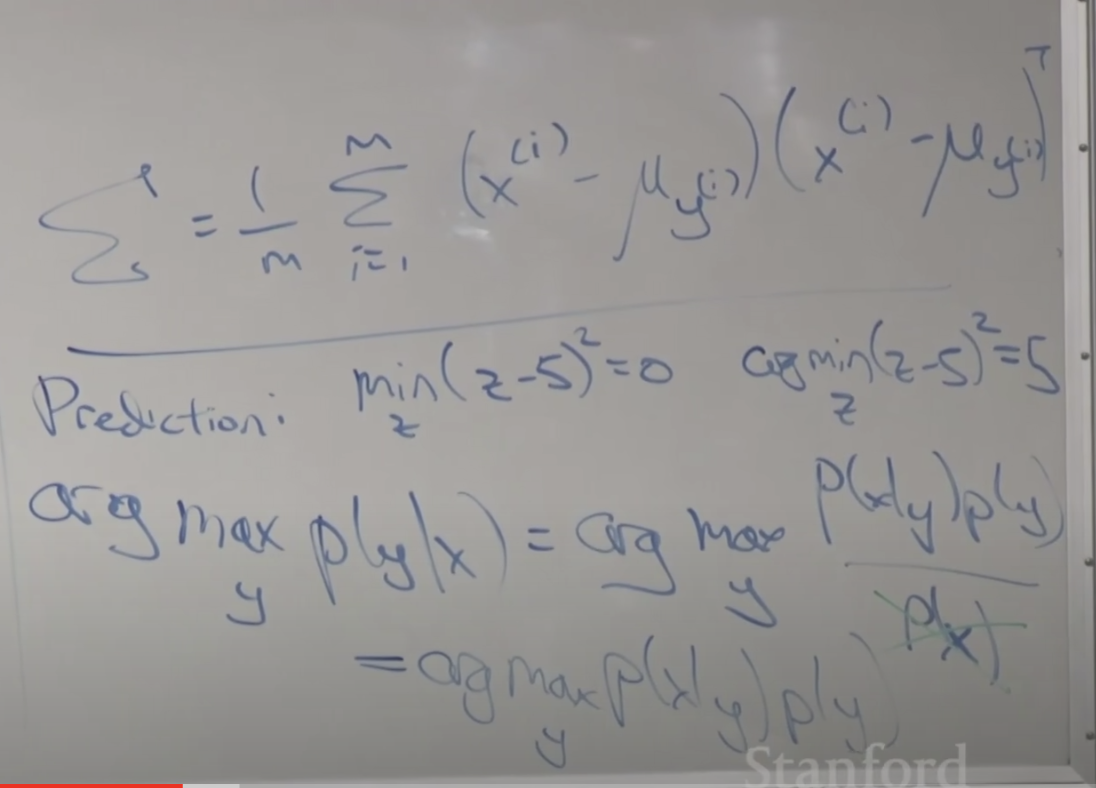 Σ = 1/m Σ_{i=1}^{m} (x^{(i)} - μ_{y^{(i)}}) (x^{(i)} - μ_{y^{(i)}})^T
Prediction: min_z (z-5)^2 = 0 arg min_z (z-5)^2 = 5
arg max_y p(y|x) = arg max_y p(x|y)p(y) / p(x)
= arg max_y p(x|y) p(y)
Stanford